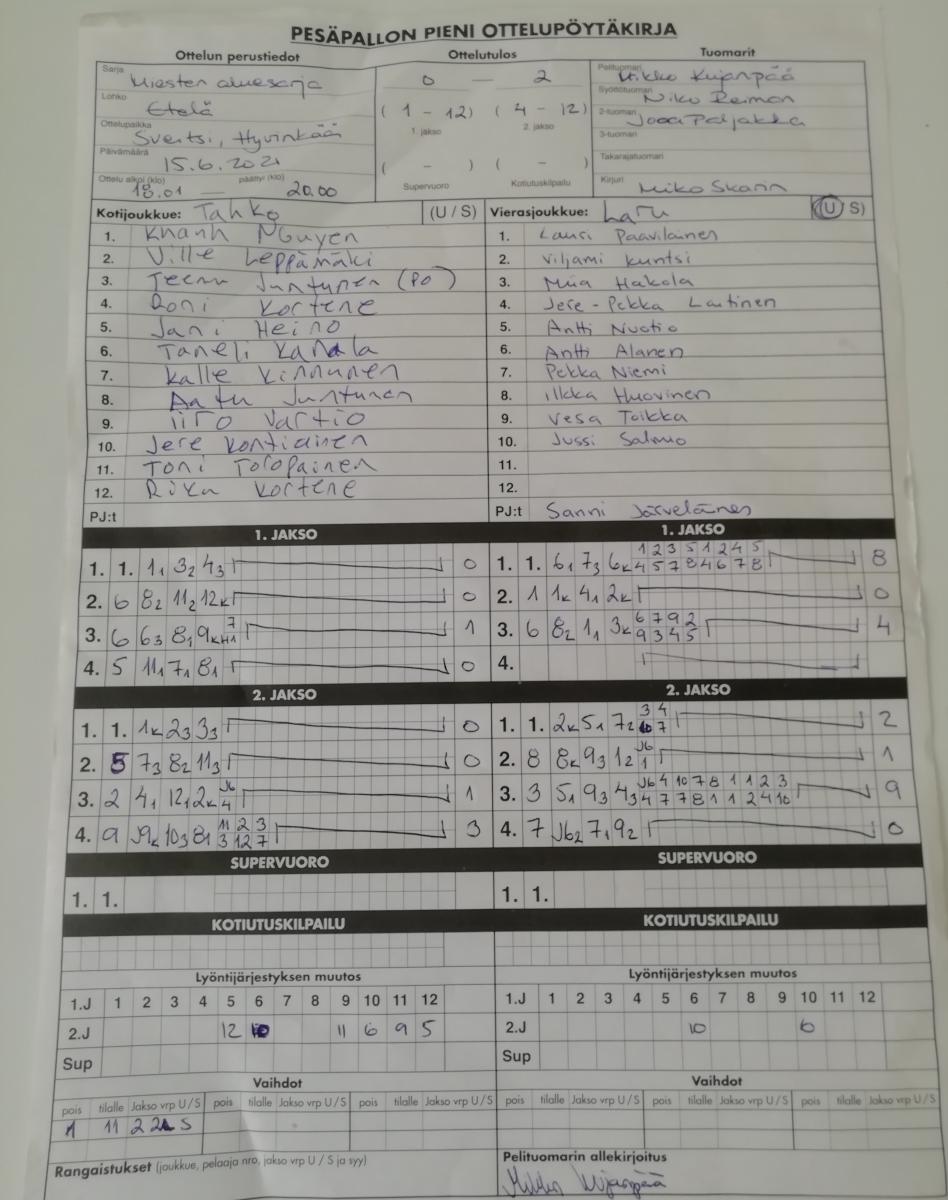 PESÄPALLON PIENI OTTELUPÖYTÄKIRJA
Ottelun perustiedot
Sarja Miesten aluesarja
Lohko Etelä
Ottelupaikka Sveitsi, Hyvinkää
Päivämäärä 15.6.2021
Ottelu alkoi (klo) 18.01 — päättyi (klo) 20.00
Ottelutulos
0 — 2
( 1 - 12 ) ( 4 - 12 )
1. jakso 2. jakso
( - ) ( - )
Supervuoro Kotiutuskilpailu
Tuomarit
Pelituomari Mikko Kujanpää
Syöttötuomari Niko Reiman
2-tuomari Jooa Paljakka
3-tuomari
Takarajatuomari
Kirjuri Miko Skarin
Kotijoukkue: Tahko (U / S)
1. Khanh Nguyen
2. Ville Leppämäki
3. Teemu Juntunen (PO)
4. Roni Kortene
5. Jani Heino
6. Taneli Kanala
7. Kalle Kinnunen
8. Aatu Juntunen
9. Iiro Vartio
10. Jere Kontiainen
11. Toni Tolopainen
12. Riku Kortene
PJ:t
Vierasjoukkue: Laru (U / S)
1. Lauri Paavilainen
2. Viljami Kuntsi
3. Miia Hakola
4. Jere-Pekka Laitinen
5. Antti Nuotio
6. Antti Alanen
7. Pekka Niemi
8. Ilkka Huovinen
9. Vesa Toikka
10. Jussi Salmio
11.
12.
PJ:t Sanni Järveläinen
1. JAKSO
1. 1. 1₁ 3₂ 4₃ 0
2. 6 8₂ 11₂ 12k 0
3. 6 6₃ 8₁ 9k 7 H1 1
4. 5 11₁ 7₁ 8₁ 0
1. JAKSO
1 2 3 5 1 2 4 5
1. 1. 6₁ 7₃ 6k 4 5 7 8 4 6 7 8 8
2. 1 1k 4₁ 2k 0
6 7 9 2
3. 6 8₂ 1₁ 3k 9 3 4 5 4
4.
2. JAKSO
1. 1. 1k 2₃ 3₃ 0
2. 5 7₃ 8₂ 11₃ 0
J6
3. 2 4₁ 12₁ 2k 4 1
11 2 3
4. 9 J9k 10₃ 8₁ 3 12 7 3
2. JAKSO
3 4
1. 1. 2k 5₁ 7₂ 10 7 2
J6
2. 8 8k 9₃ 1₂ 1 1
J6 4 10 7 8 1 1 2 3
3. 3 5₁ 9₃ 4₃ 4 7 7 8 1 1 2 4 10 9
4. 7 J6₂ 7₁ 9₂ 0
SUPERVUORO
1. 1.
SUPERVUORO
1. 1.
KOTIUTUSKILPAILU
KOTIUTUSKILPAILU
Lyöntijärjestyksen muutos
1.J 1 2 3 4 5 6 7 8 9 10 11 12
2.J 12 10 11 6 9 5
Sup
Lyöntijärjestyksen muutos
1.J 1 2 3 4 5 6 7 8 9 10 11 12
2.J 10 6
Sup
Vaihdot
pois tilalle Jakso vrp U / S pois tilalle Jakso vrp U / S pois tilalle Jakso vrp U / S
1 11 2 2 S
Vaihdot
pois tilalle Jakso vrp U / S pois tilalle Jakso vrp U / S pois tilalle Jakso vrp U / S
Rangaistukset (joukkue, pelaaja nro, jakso vrp U / S ja syy)
Pelituomarin allekirjoitus
Mikko Kujanpää